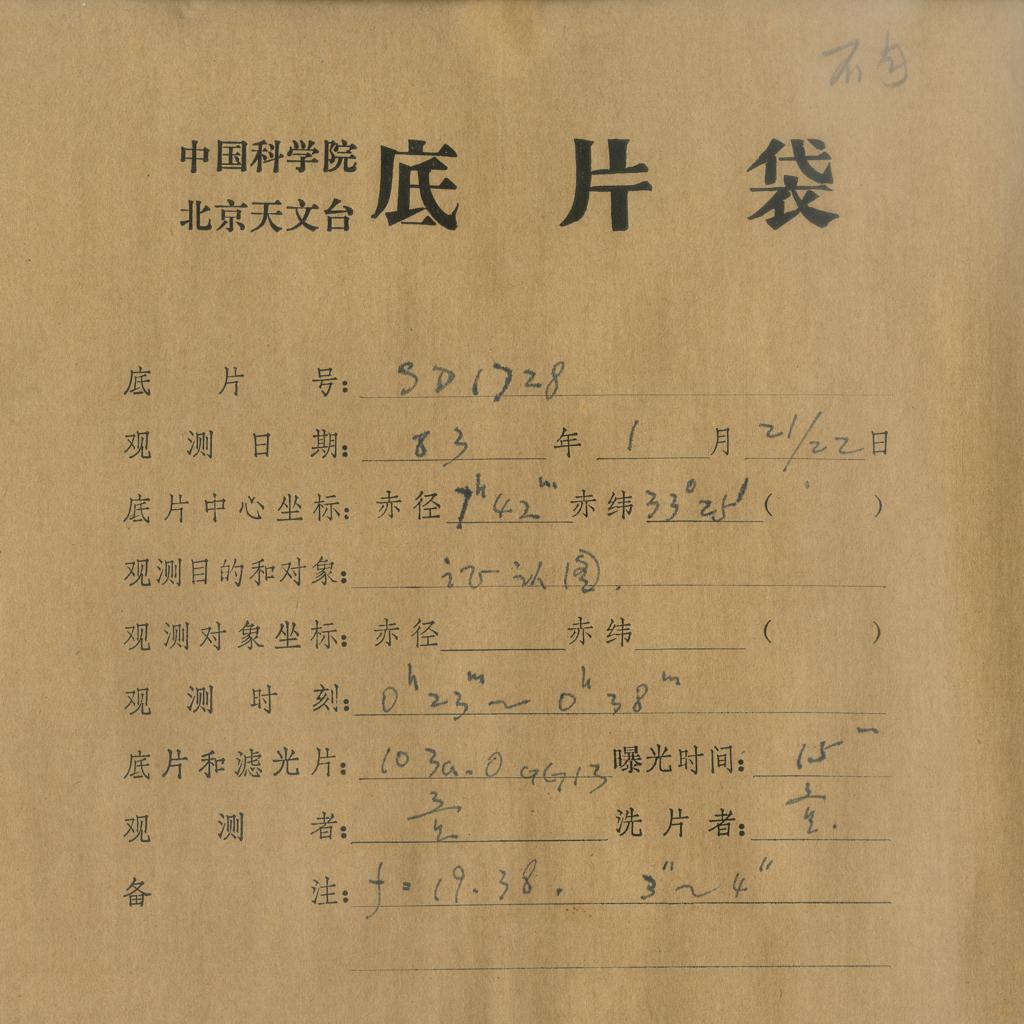 中国科学院
北京天文台
底片袋
底片号: SD1728
观测日期: 83年1月21/22日
底片中心坐标: 赤径7ʰ42ᵐ赤纬33°25′( )
观测目的和对象: 证认图.
观测对象坐标: 赤径 赤纬 ( )
观测时刻: 0ʰ23ᵐ~0ʰ38ᵐ
底片和滤光片: 103a.O GG13 曝光时间: 15ᵐ
观测者: 洗片者:
备注: f=19.38. 3″~4″